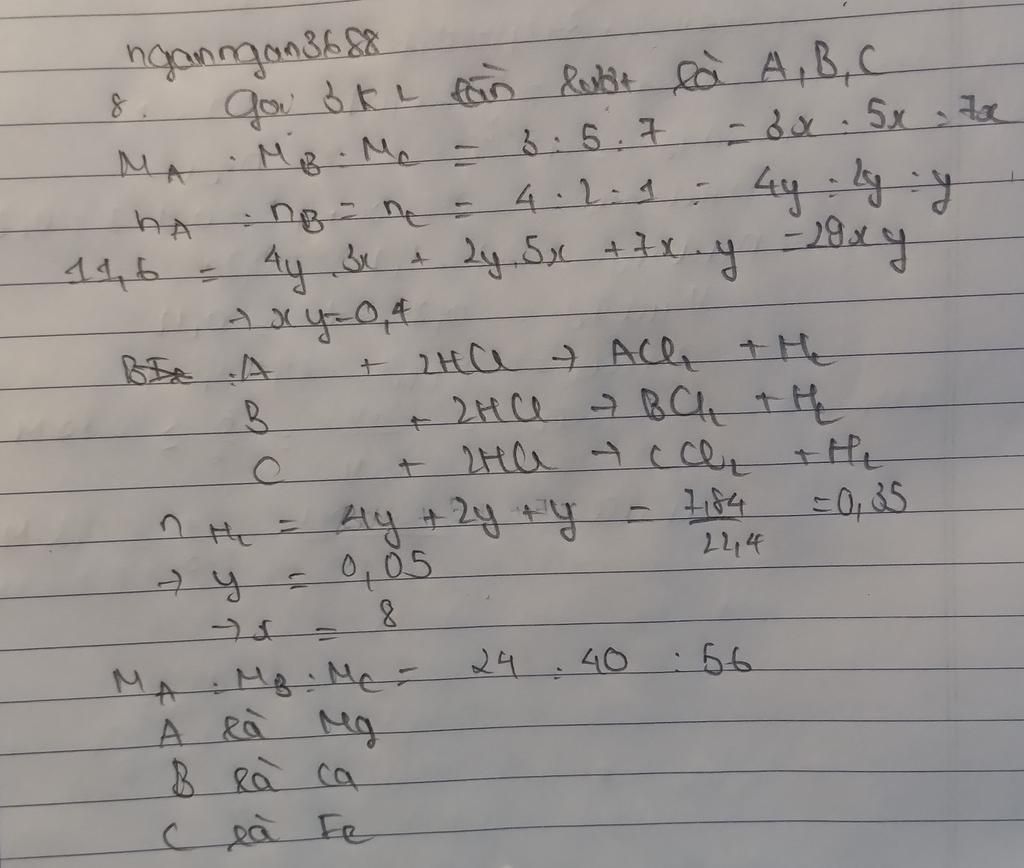 nganngan3688
8. Gọi 3 KL lần lượt là A, B, C
M_A : M_B : M_C = 3 : 5 : 7 = 3x : 5x : 7x
n_A : n_B = n_C = 4 : 2 : 1 = 4y : 2y : y
11,6 = 4y.3x + 2y.5x + 7x.y = 29xy
→ xy = 0,4
A + 2HCl → ACl₂ + H₂
B + 2HCl → BCl₂ + H₂
C + 2HCl → CCl₂ + H₂
n_H₂ = 4y + 2y + y = 7,84/22,4 = 0,35
→ y = 0,05
→ x = 8
M_A : M_B : M_C = 24 : 40 : 56
A là Mg
B là Ca
C là Fe